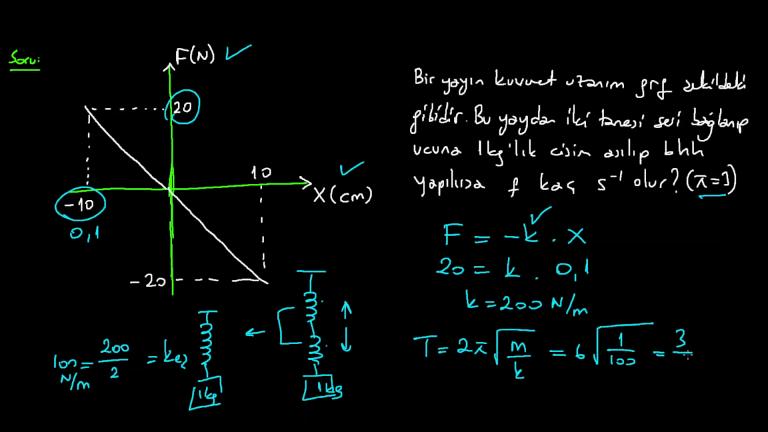 Soru:
F(N)
20
10
X(cm)
-10
0,1
-20
Bir yayın kuvvet uzanım grf şekildeki
gibidir. Bu yaydan iki tanesi seri bağlanıp
ucuna 1kg'lık cisim asılıp bhh
yapılırsa f kaç s⁻¹ olur? (π=3)
F = -k . X
20 = k . 0,1
k = 200 N/m
T = 2π√(m/k) = 6√(1/100) = 3/5
100 N/m = 200/2 = keş
1kg
1kg